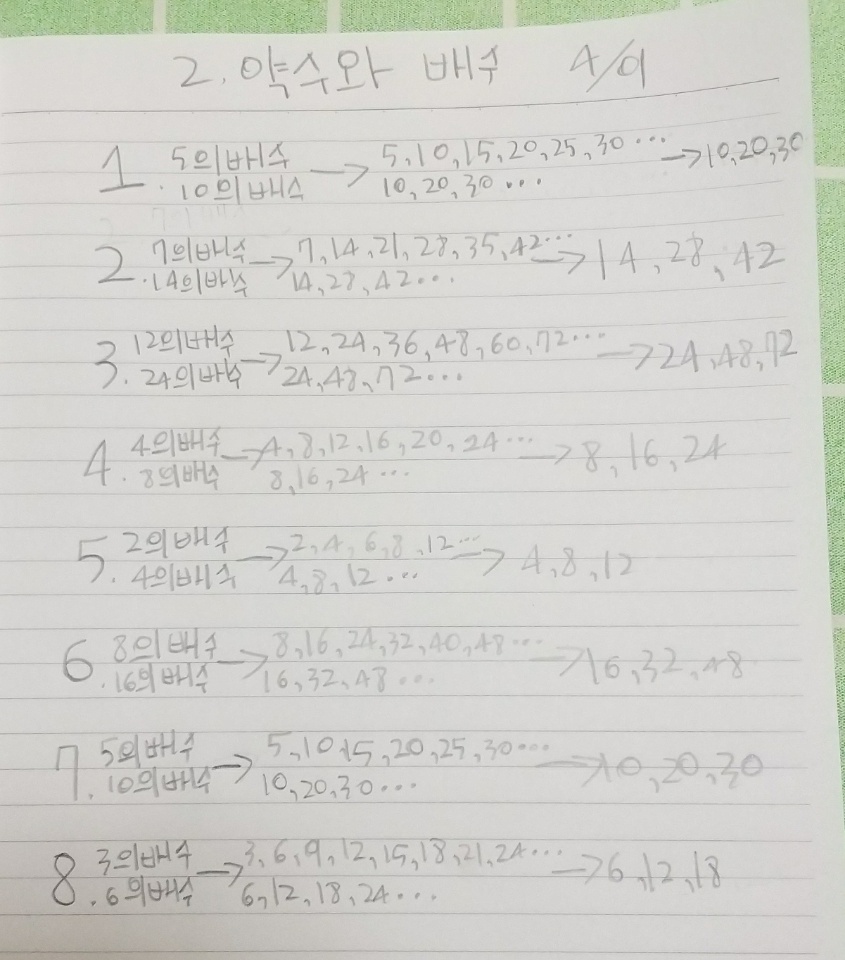 2. 약수와 배수 4/9
1. 5의배수 → 5,10,15,20,25,30··· → 10,20,30
10의배수 10,20,30···
2. 7의배수 → 7,14,21,28,35,42··· → 14,28,42
14의배수 14,28,42···
3. 12의배수 → 12,24,36,48,60,72··· → 24,48,72
24의배수 24,48,72···
4. 4의배수 → 4,8,12,16,20,24··· → 8,16,24
8의배수 8,16,24···
5. 2의배수 → 2,4,6,8,12··· → 4,8,12
4의배수 4,8,12···
6. 8의배수 → 8,16,24,32,40,48··· → 16,32,48
16의배수 16,32,48···
7. 5의배수 → 5,10,15,20,25,30··· → 10,20,30
10의배수 10,20,30···
8. 3의배수 → 3,6,9,12,15,18,21,24··· → 6,12,18
6의배수 6,12,18,24···